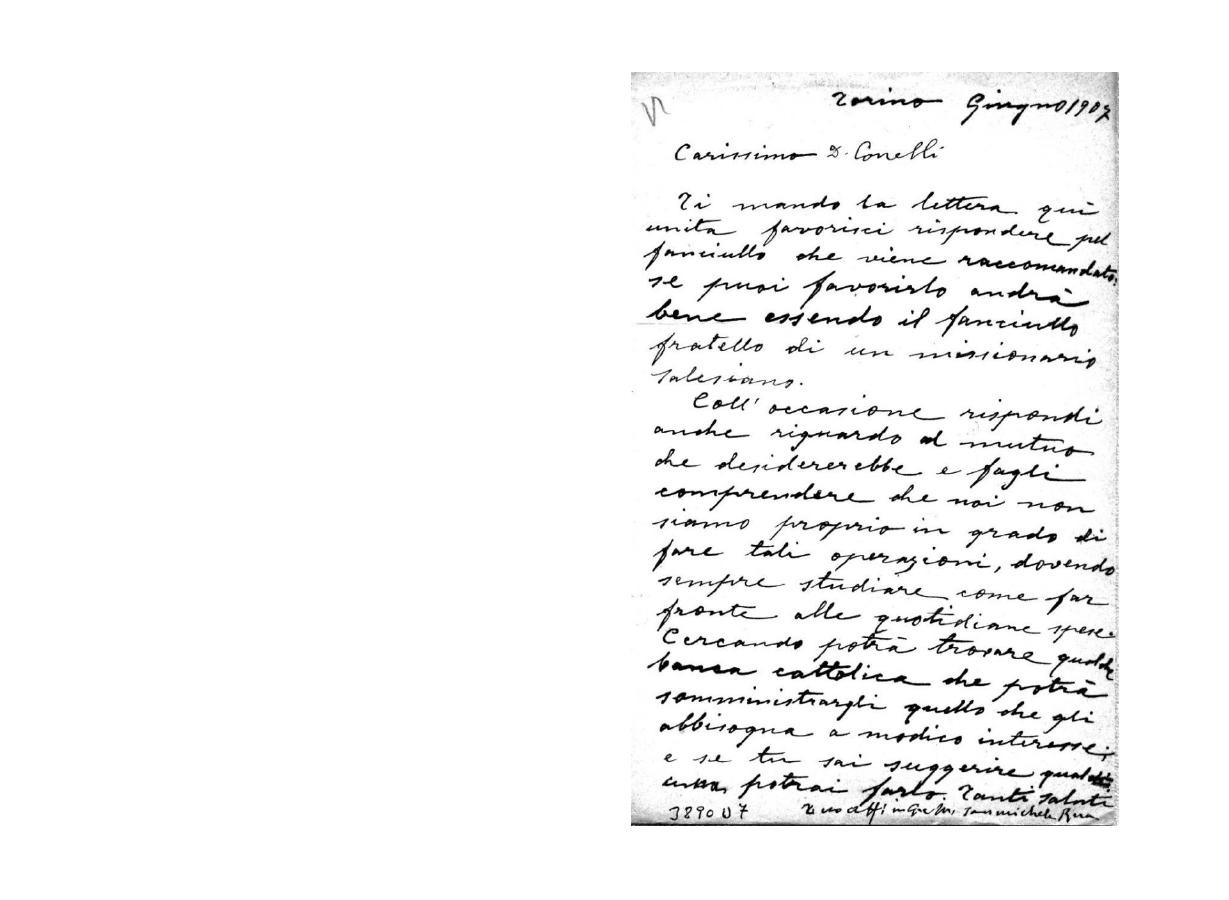 Torino Giugno 1907
Carissimo D. Conelli
Ti mando la lettera quì
unita favorisci rispondere pel
fanciullo che viene raccomandato:
se puoi favorirlo andrà
bene essendo il fanciullo
fratello di un missionario
salesiano.
Coll' occasione rispondi
anche riguardo al mutuo
che desidererebbe e fagli
comprendere che noi non
siamo proprio in grado di
fare tali operazioni, dovendo
sempre studiare come far
fronte alle quotidiane spese.
Cercando potrà trovare qualche
banca cattolica che potrà
somministrargli quello che gli
abbisogna a modico interesse;
e se tu sai suggerire
potrai farlo. Tanti saluti
Tuo aff. in G. e M. Sac. Michele Rua
3890 U 7